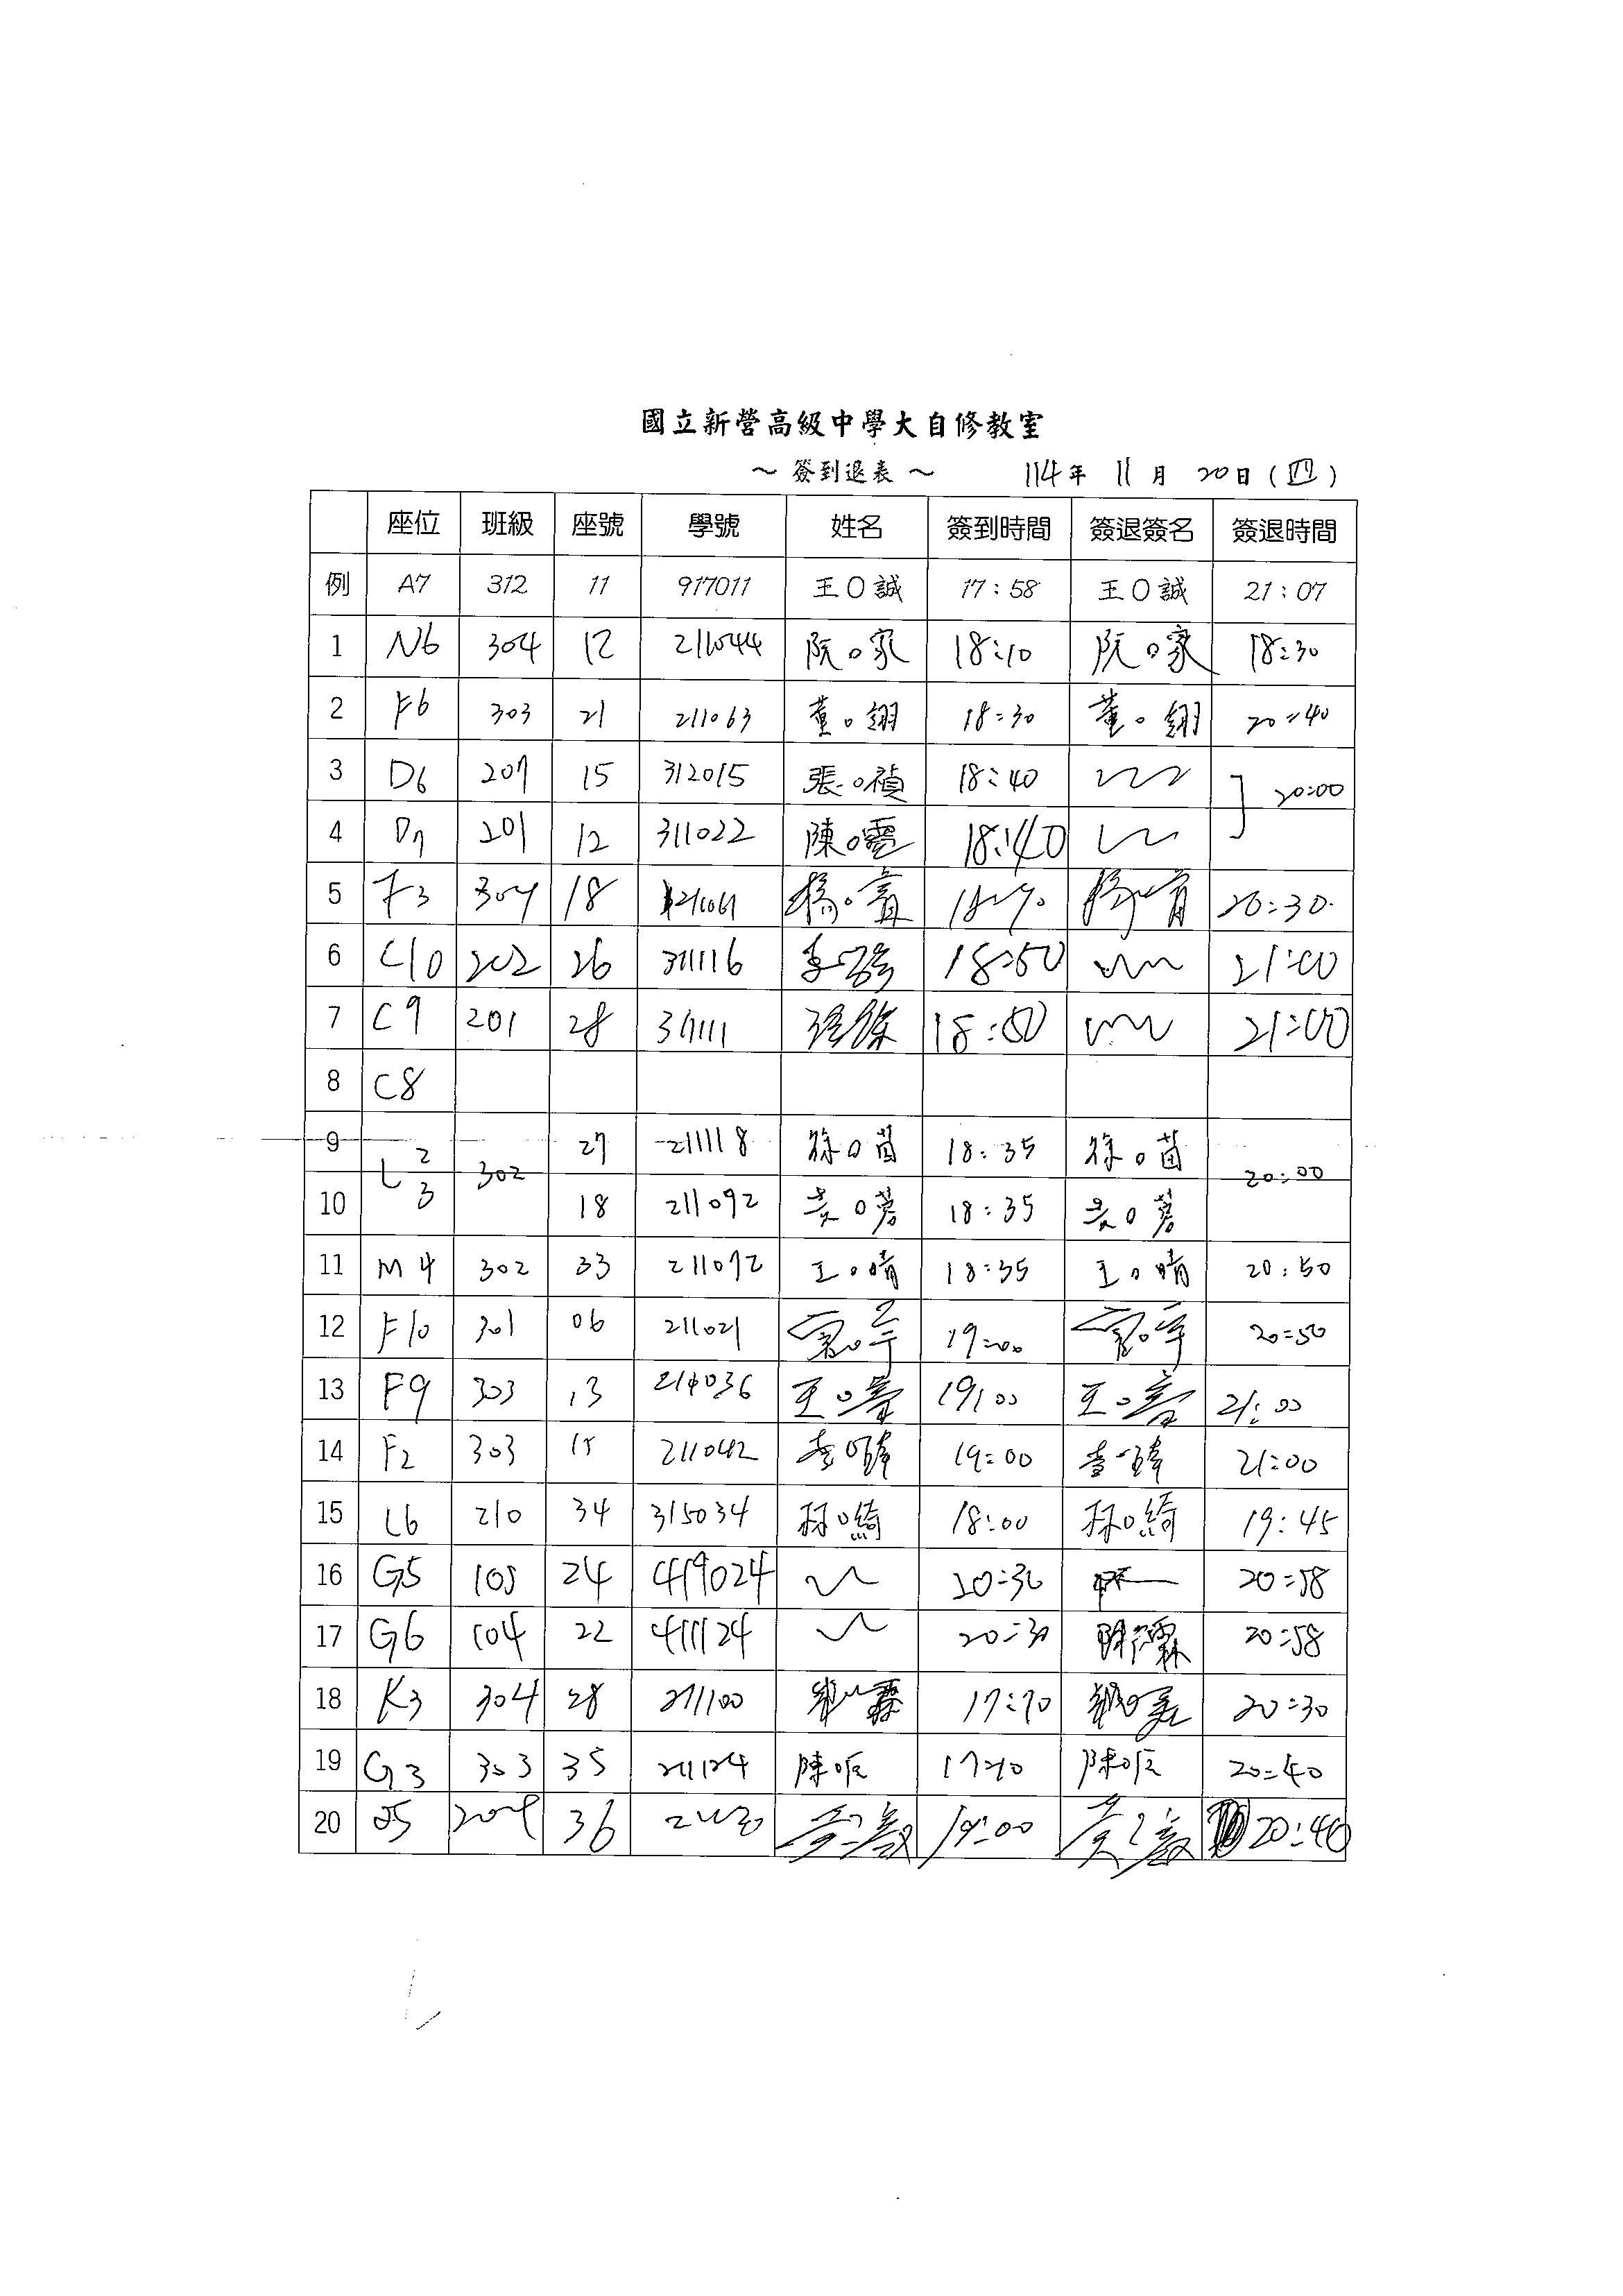 國立新營高級中學大自修教室
～ 簽到退表 ～ 114年 11月 20日(四)
座位 班級 座號 學號 姓名 簽到時間 簽退簽名 簽退時間
例 A7 312 11 917011 王〇誠 17:58 王〇誠 21:07
1 N6 304 12 211044 阮〇家 18:10 阮〇家 18:30
2 F6 303 21 211063 董〇翎 18:30 董〇翎 20:40
3 D6 207 15 312015 張〇禎 18:40 20:00
4 D7 201 12 311022 陳〇霓 18:40
5 F3 304 18 20:30
6 C10 202 26 311116 18:50 21:00
7 C9 201 28 311111 18:50 21:00
8 C8
9 L2 302 27 211118 徐〇茵 18:35 徐〇茵 20:00
10 3 18 211092 18:35
11 M4 302 33 211092 王〇晴 18:35 王〇晴 20:50
12 F10 301 06 211021 19:00 20:50
13 F9 303 13 19:00 21:00
14 F2 303 15 211042 19:00 21:00
15 L6 210 34 315034 林〇綺 18:00 林〇綺 19:45
16 G5 105 24 419024 20:30 20:58
17 G6 104 22 411124 20:30 20:58
18 K3 304 28 211100 20:30
19 G3 303 35 211124 陳〇 陳〇 20:40
20 36 19:00 20:40